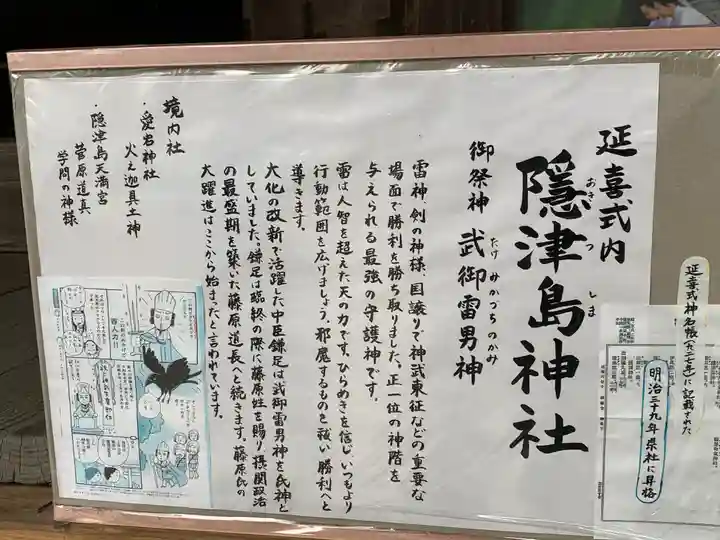 延喜式内
隠津島神社
おきつしま
御祭神 武御雷男神
たけみかづちのかみ
雷神、剣の神様、国譲りで神武東征などの重要な
場面で勝利を勝ち取りました。正一位の神階を
与えられる最強の守護神です。
雷は人智を超えた天の力です。ひらめきを信じ、いつもより
行動範囲を広げましょう。邪魔するものを祓い勝利へと
導きます。
大化の改新で活躍した中臣鎌足は武御雷男神を氏神と
していました。鎌足は臨終の際に藤原姓を賜り摂関政治
の最盛期を築いた藤原道長へと続きます。藤原氏の
大躍進はここから始まったと言われています。
境内社
・愛宕神社
火之迦具土神
・隠津島天満宮
菅原道真
学問の神様
延喜式神名帳(九二七年)に記載された
明治三十九年県社に昇格